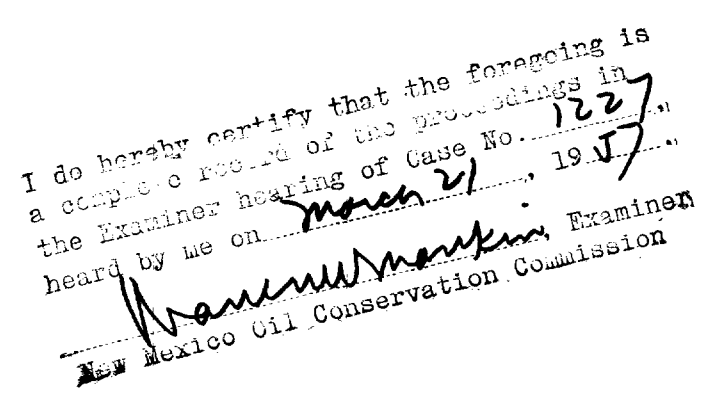 I do hereby certify that the foregoing is
a complete record of the proceedings in
the Examiner hearing of Case No. 1227,
heard by me on March 21, 1957.
Warren W Mankin, Examiner
New Mexico Oil Conservation Commission